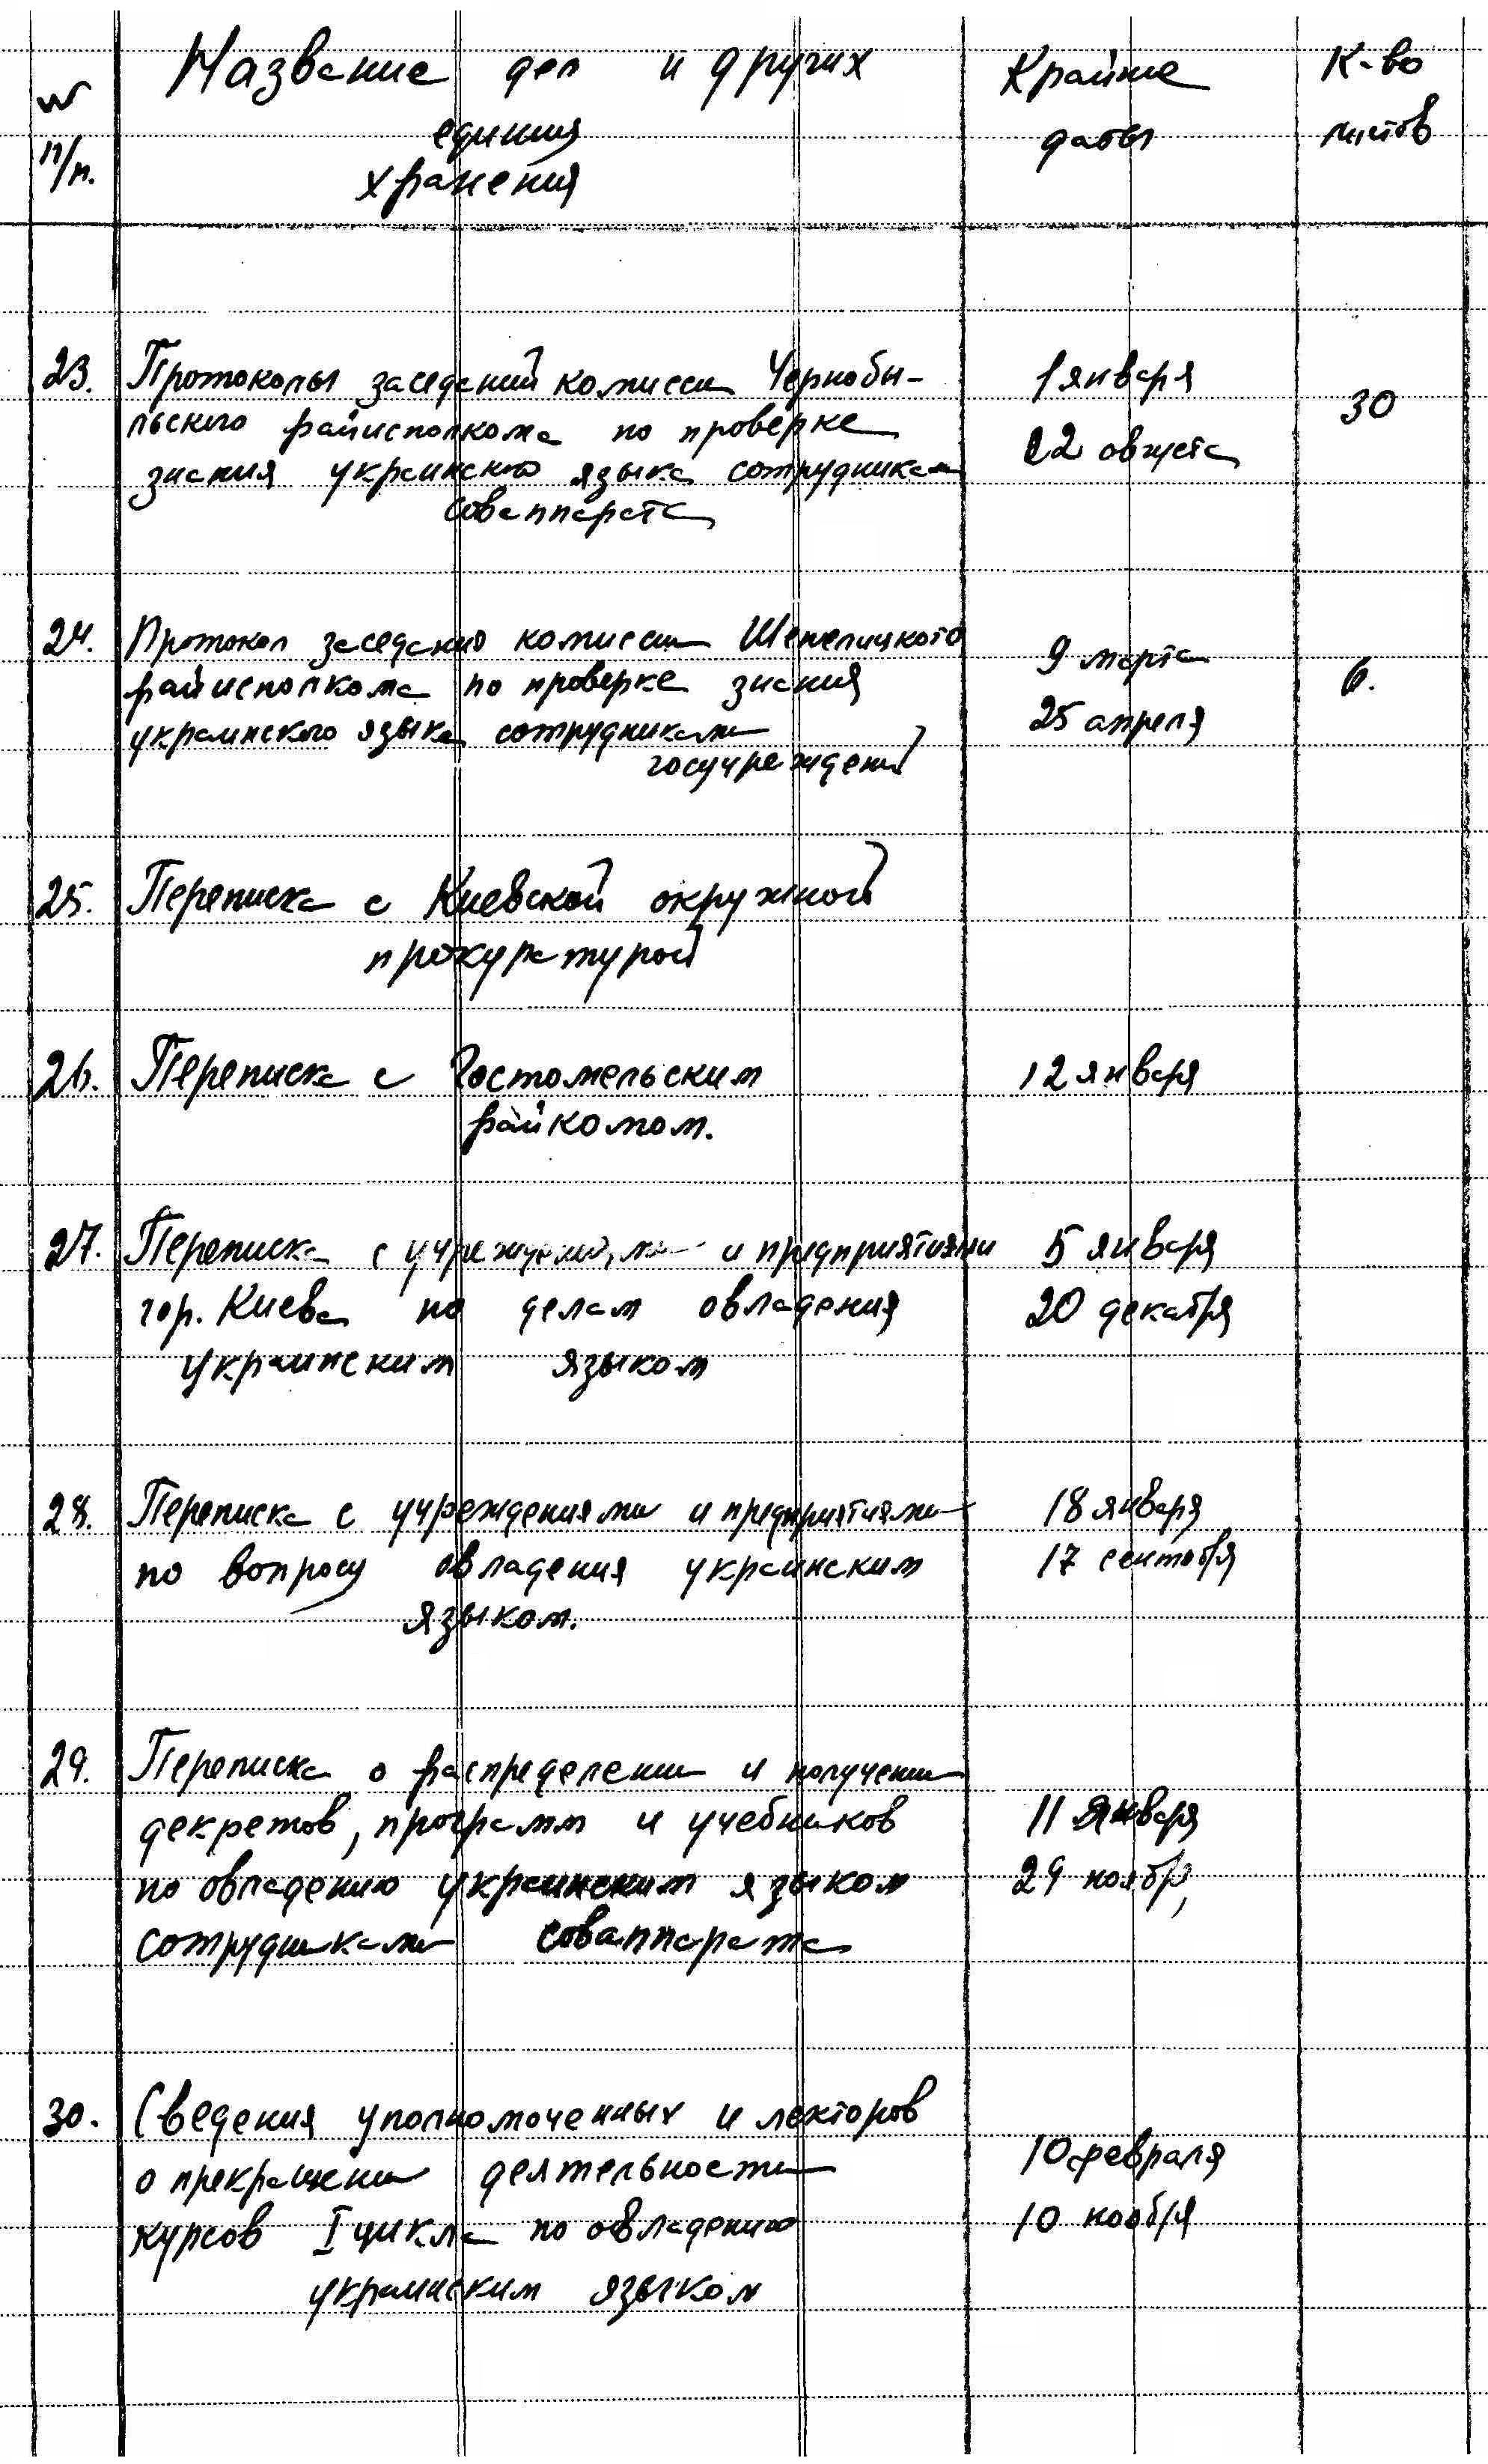 № п/п.
Название дел и других
единиц
хранения
Крайние
даты
К-во
листов
23. Протоколы заседаний комиссии Чернобы-
льского райисполкома по проверке
знания украинского языка сотрудникам
соваппарата
1 января
22 августа
30
24. Протокол заседания комиссии Шепелицкого
райисполкома по проверке знания
украинского языка сотрудниками
госучреждений
9 марта
25 апреля
6.
25. Переписка с Киевской окружной
прокуратурой
26. Переписка с Гостомельским
райкомом.
12 января
27. Переписка с учреждениями и предприятиями
гор. Киева по делам овладения
украинским языком
5 января
20 декабря
28. Переписка с учреждениями и предприятиями
по вопросу овладения украинским
языком.
18 января
17 сентября
29. Переписка о распределении и получении
декретов, программ и учебников
по овладению украинским языком
сотрудниками соваппарата
11 января
29 ноября
30. Сведения уполномоченных и лекторов
о прекращении деятельности
курсов I цикла по овладению
украинским языком
10 февраля
10 ноября